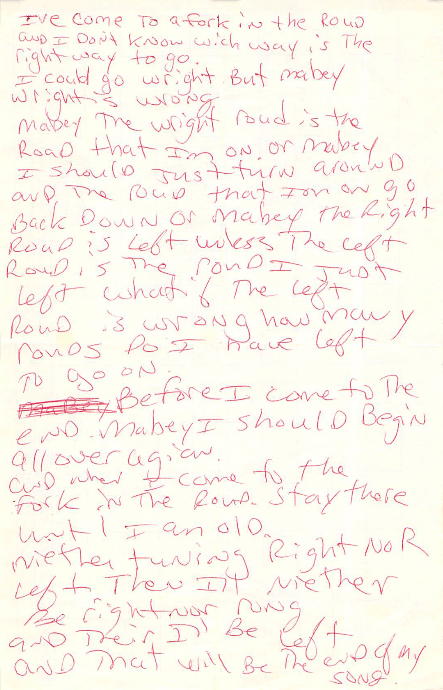 I've come to a fork in the Roud
and I Don't know wich way is The
right way to go.
I could go wright But mabey
wright is wrong
mabey The wright roud is the
Road that I'm on. or mabey
I should Just turn arounD
and The roud that I'm on go
Back Down or mabey the Right
Roud is left unless The left
Roud is The roud I just
left what if The left
Roud is wrong how many
rouds Do I have left
To go on.
Before I come to The
end. mabey I should Begin
all over agian.
and when I come to the
fork in The Roud. Stay there
until I am old.
niether tuning Right NoR
left Then I'll niether
Be right nor rong
and Their I'll Be left
and That will Be The end of my
song.